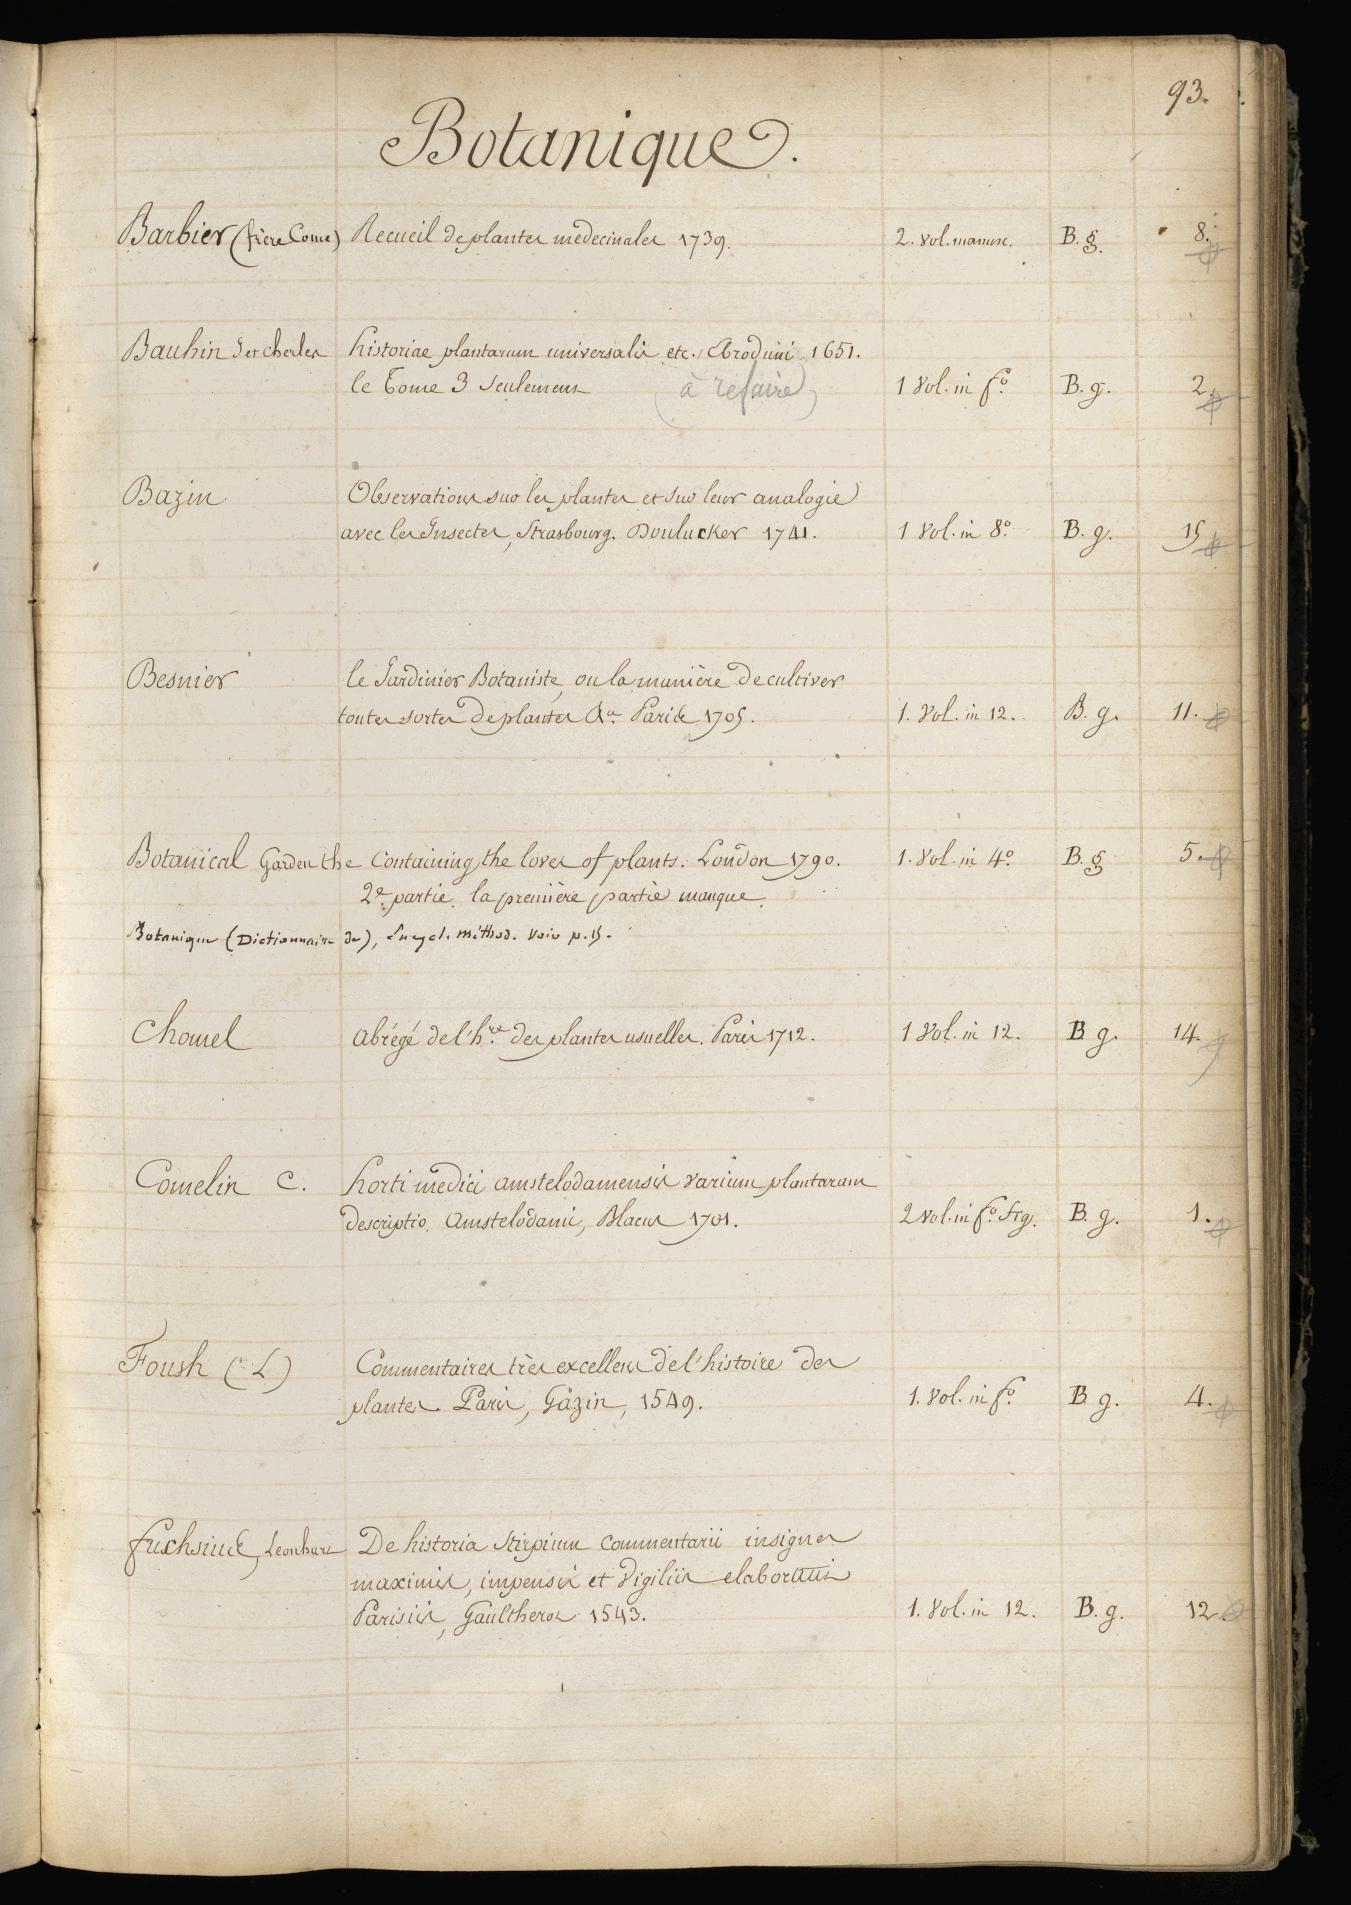 93.
Botanique.
Barbier (frère Come) Recueil de plantes medecinales 1739. 2. vol. manusc. B. g. 8.
Bauhin J et cherler historiae plantarum universalis etc. Ebroduni 1651.
le Tome 3 seulement (à refaire) 1 vol. in fo. B. g. 2.
Bazin Observations sur les plantes et sur leur analogie
avec les Insectes, Strasbourg. Doulucker 1741. 1 vol. in 8o. B. g. 15
Besnier le Jardinier Botaniste, ou la manière de cultiver
toutes sortes de plantes &a. Paris 1705. 1. vol. in 12. B. g. 11.
Botanical Garden the Containing the lover of plants. London 1790. 1. vol. in 4o. B. g 5.
2e. partie. la première partie manque.
Botanique (Dictionnaire de), Encycl. méthod. Voir p. 15.
Chomel abrégé de l'hre. des plantes usuelles. Paris 1712. 1 vol. in 12. B g. 14.
Comelin C. horti medici amstelodamensis rarium plantarum
descriptio. Amstelodami, Blaeus 1701. 2 vol. in fo. fig. B. g. 1.
Foush (L) Commentaires très excellens de l'histoire des
plantes. Paris, Gazin, 1549. 1. vol. in fo. B g. 4.
fuchsius, Leonhart De historia Stirpium commentarii insignes
maximis, impensis et Vigiliis elaborati
Parisiis, Gaultherot 1543. 1. vol. in 12. B. g. 12